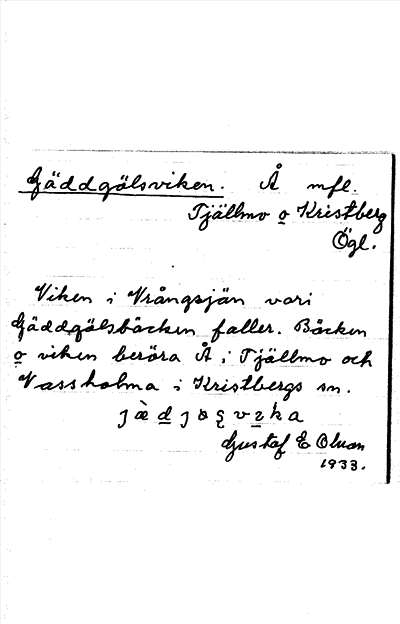 Gäddgölsviken. Å mfl.
Tjällmo o Kristberg
Ögl.
Viken i Vrångsjön vari
Gäddgölsbäcken faller. Bäcken
o viken beröra Å i Tjällmo och
Vassholma i Kristbergs sn.
Gustaf E Olson
1933.